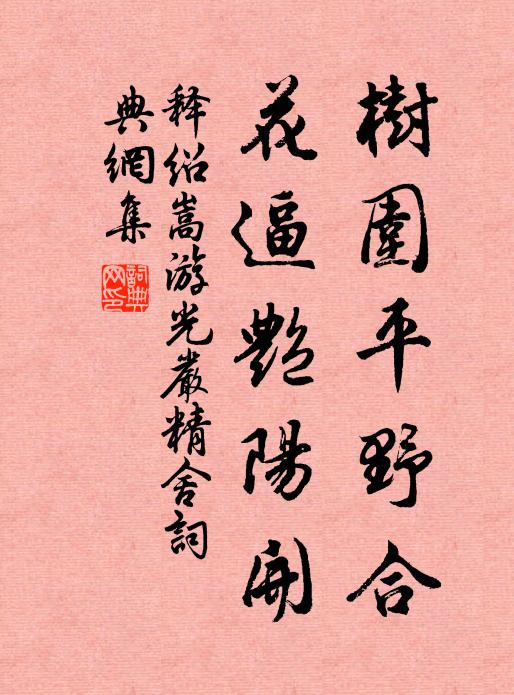 樹圍平野合
花逼艷陽開
释绍嵩游光嚴精舍詞
典網集
詞典網印